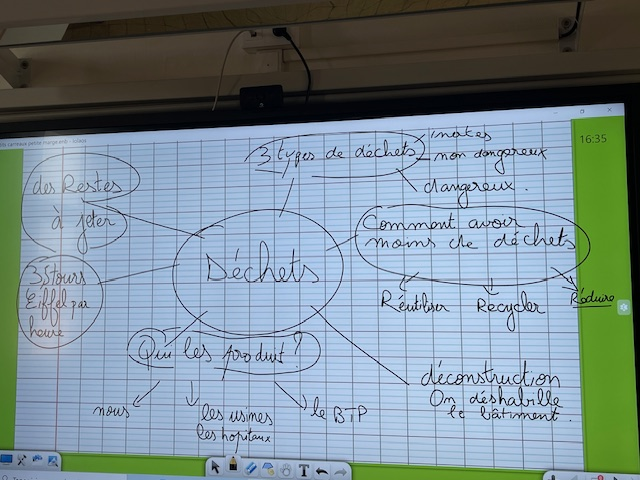 16:35
3 types de déchets
inertes
non dangereux
dangereux.
des Restes
à jeter
Comment avoir
moins de déchets
Réutiliser
Recycler
Réduire
Déchets
35 tours
Eiffel par
heure
Qui les produit ?
nous
les usines
les hopitaux
le BTP
déconstruction
On déshabille
le bâtiment.